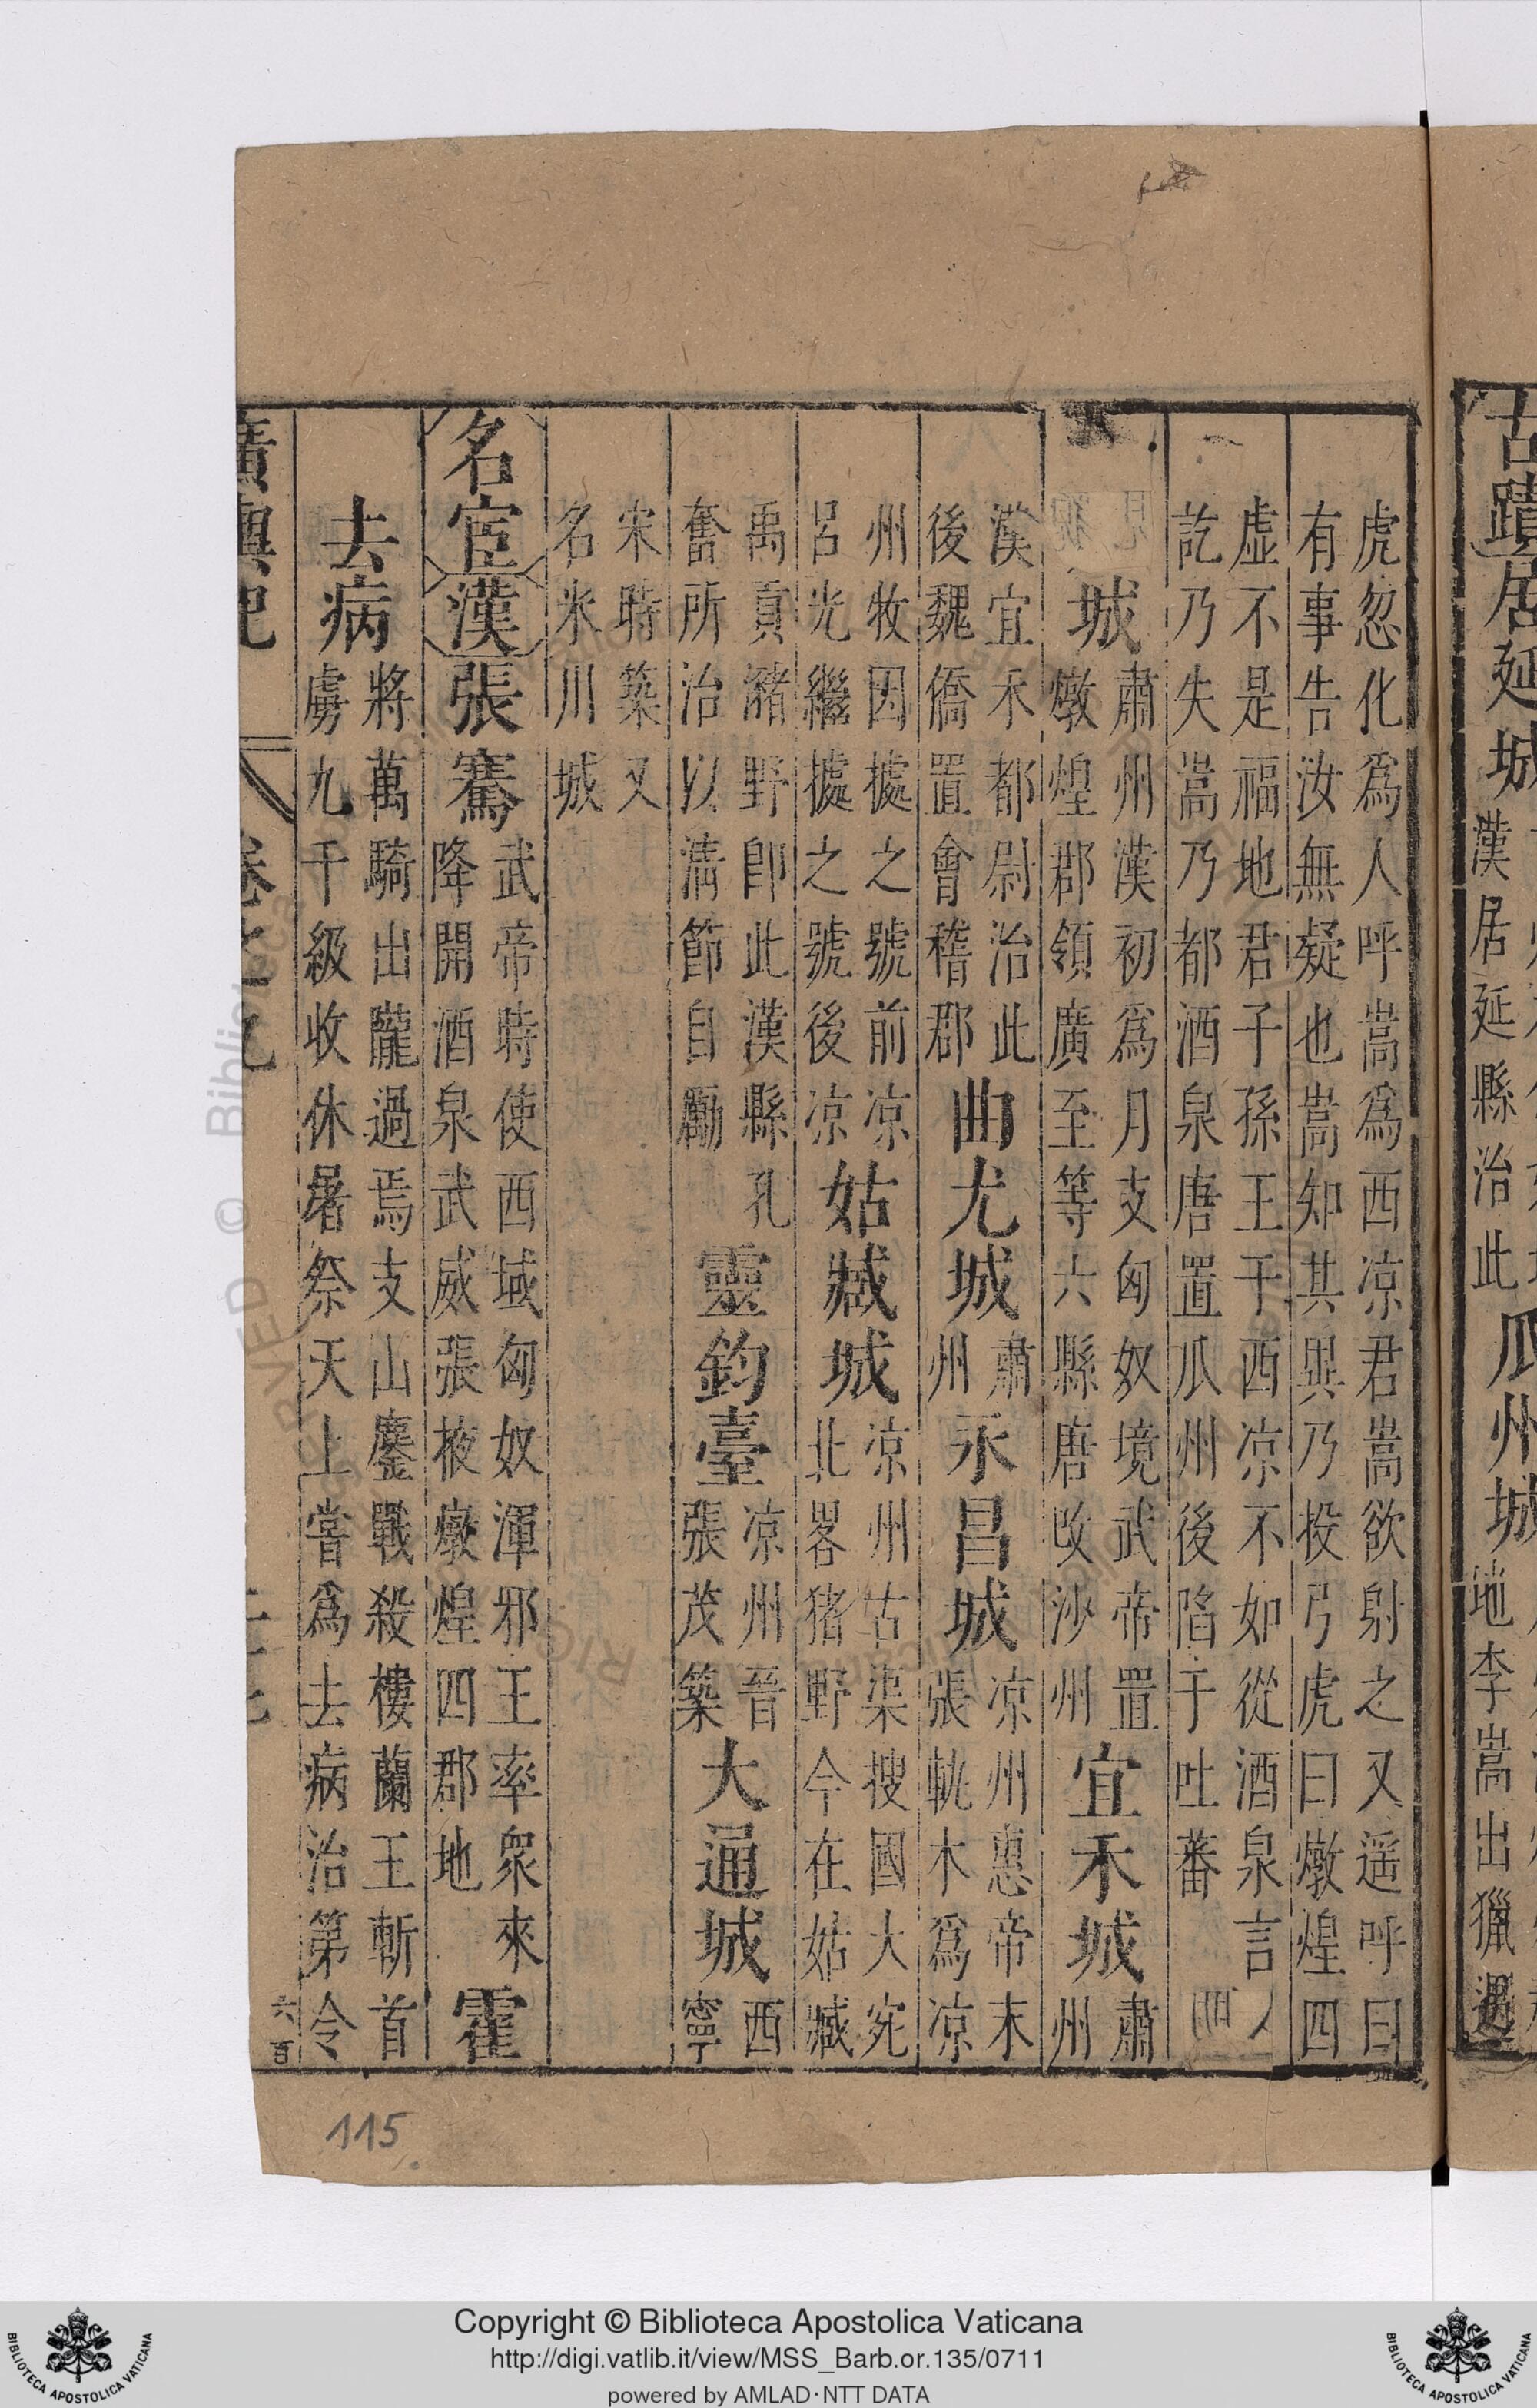 古蹟居延城
漢居延縣治此
瓜州城
地李暠出獵遇
虎忽化爲人呼暠爲西凉君暠欲射之又遥呼曰
有事告汝無疑也暠知其異乃投弓虎曰燉煌四
虛不是福地君子孫王于西凉不如從酒泉言
訖乃失暠乃都酒泉唐置瓜州後陷于吐蕃
城
肅州漢初爲月支匈奴境武帝置
燉煌郡領廣至等六縣唐改沙州
宜禾城
肅
州
漢宜禾都尉治此
後魏僑置會稽郡
曲尤城
肅
州
永昌城
凉州惠帝末
張軌木爲凉
州牧因據之號前凉
呂光繼據之號後凉
姑臧城
凉州古渠搜國大宛
北畧猪野今在姑臧
禹貢瀦野卽此漢縣孔
奮所治以清節自勵
靈鈞臺
凉州晉
張茂築
大通城
西
寧
宋時築又
名米川城
名宦漢張騫
武帝時使西域匈奴渾邪王率衆來
降開酒泉武威張掖燉煌四郡地
霍
去病
將萬騎出隴過焉支山鏖戰殺樓蘭王斬首
虜九千級收休屠祭天上嘗爲去病治第令
廣輿記
六百
115
Copyright © Biblioteca Apostolica Vaticana
http://digi.vatlib.it/view/MSS_Barb.or.135/0711
powered by AMLAD·NTT DATA
BIBLIOTECA APOSTOLICA VATICANA
BIBLIOTECA APOSTOLICA VATICANA